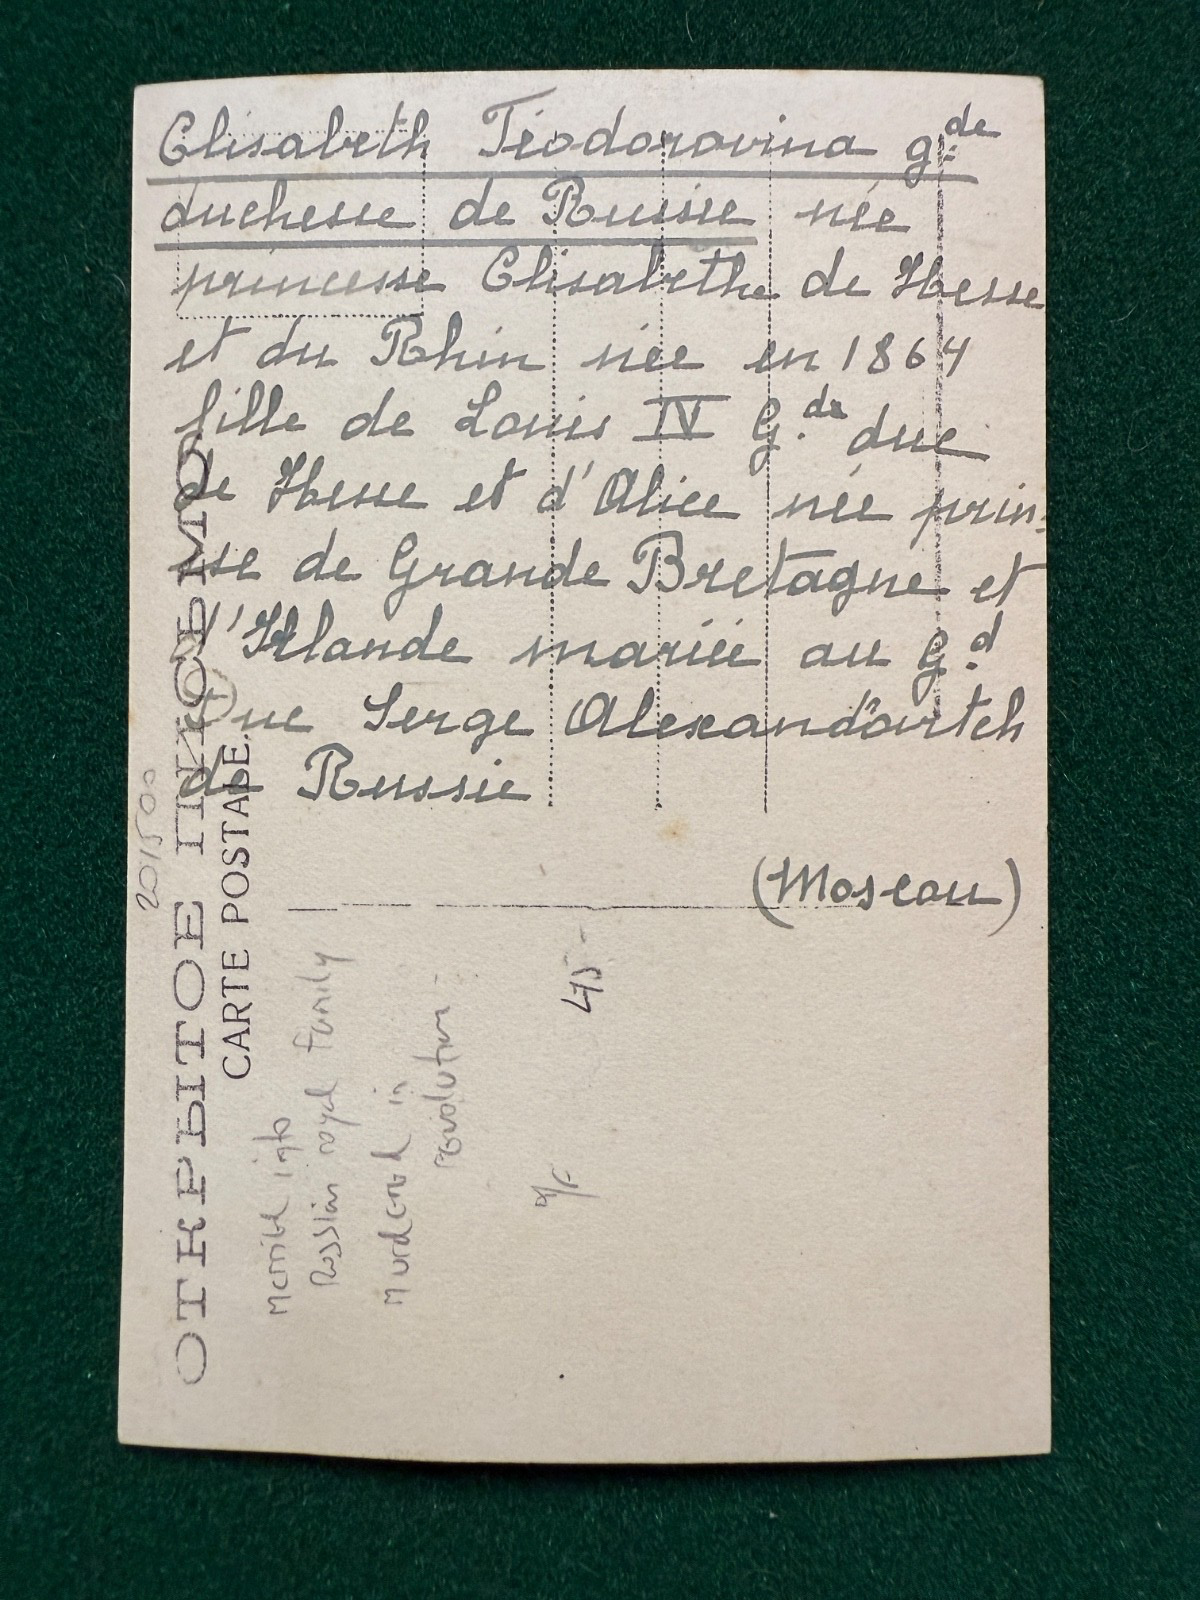 Elisabeth Féodorovina g.de
duchesse de Russie née
princesse Elisabethe de Hesse
et du Rhin née en 1864
fille de Louis IV G.de duc
de Hesse et d'Alice née prin-
sse de Grande Bretagne et
d'Irlande mariée au G.d
Duc Serge Alexandovitch
de Russie
(Moscou)
ОТКРЫТОЕ ПИСЬМО
CARTE POSTALE
201500
Married into
Russian royal family
Murdered in
revolution
475-